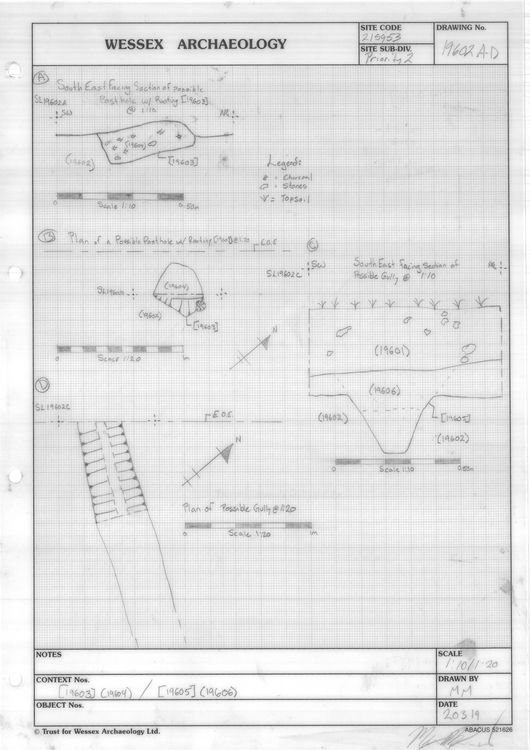 WESSEX ARCHAEOLOGY
SITE CODE
215953
SITE SUB-DIV.
Priority 2
DRAWING No.
19602 A-D
A
South East Facing Section of possible
Posthole w/ Rooting [19603]
@ 1:10
SL19602A
SW
NE
(19604)
(19602)
[19603]
0
Scale 1:10
0.50m
Legend:
= Charcoal
= Stones
= Topsoil
B
Plan of a Possible Posthole w/ Rooting @ 1:20
L.O.E.
(19604)
(19602)
[19603]
0
Scale 1:20
1m
N
C
SL19602C
SW
NE
South East Facing Section of
Possible Gully @ 1:10
(19601)
(19606)
(19602)
[19605]
(19602)
0
Scale 1:10
0.50m
D
SL19602C
L.O.E.
N
Plan of Possible Gully @ 1:20
0
Scale 1:20
1m
NOTES
SCALE
1:10/1:20
CONTEXT Nos.
[19603] (19604) / [19605] (19606)
DRAWN BY
MM
OBJECT Nos.
DATE
20319
© Trust for Wessex Archaeology Ltd.
ABACUS 521626